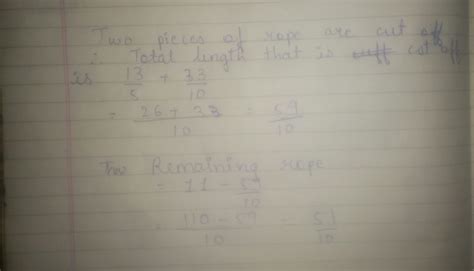 Two pieces of rope are cut off
∴ Total length that is cut off
is 13/5 + 33/10
= 26 + 33/10 = 59/10
The Remaining rope
= 11 - 59/10
= 110 - 59/10 = 51/10